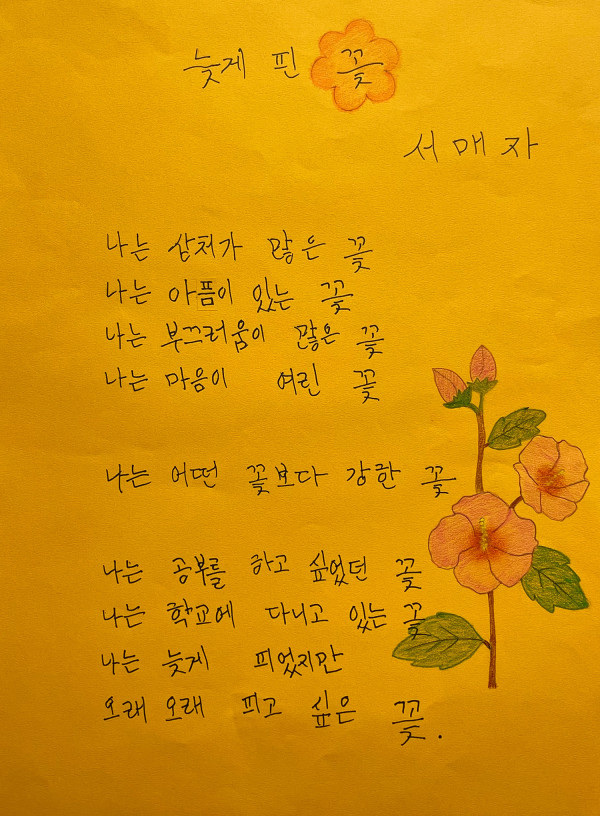 늦게 핀 꽃
서매자
나는 상처가 많은 꽃
나는 아픔이 있는 꽃
나는 부끄러움이 많은 꽃
나는 마음이 여린 꽃
나는 어떤 꽃보다 강한 꽃
나는 공부를 하고 싶었던 꽃
나는 학교에 다니고 있는 꽃
나는 늦게 피었지만
오래 오래 피고 싶은 꽃.